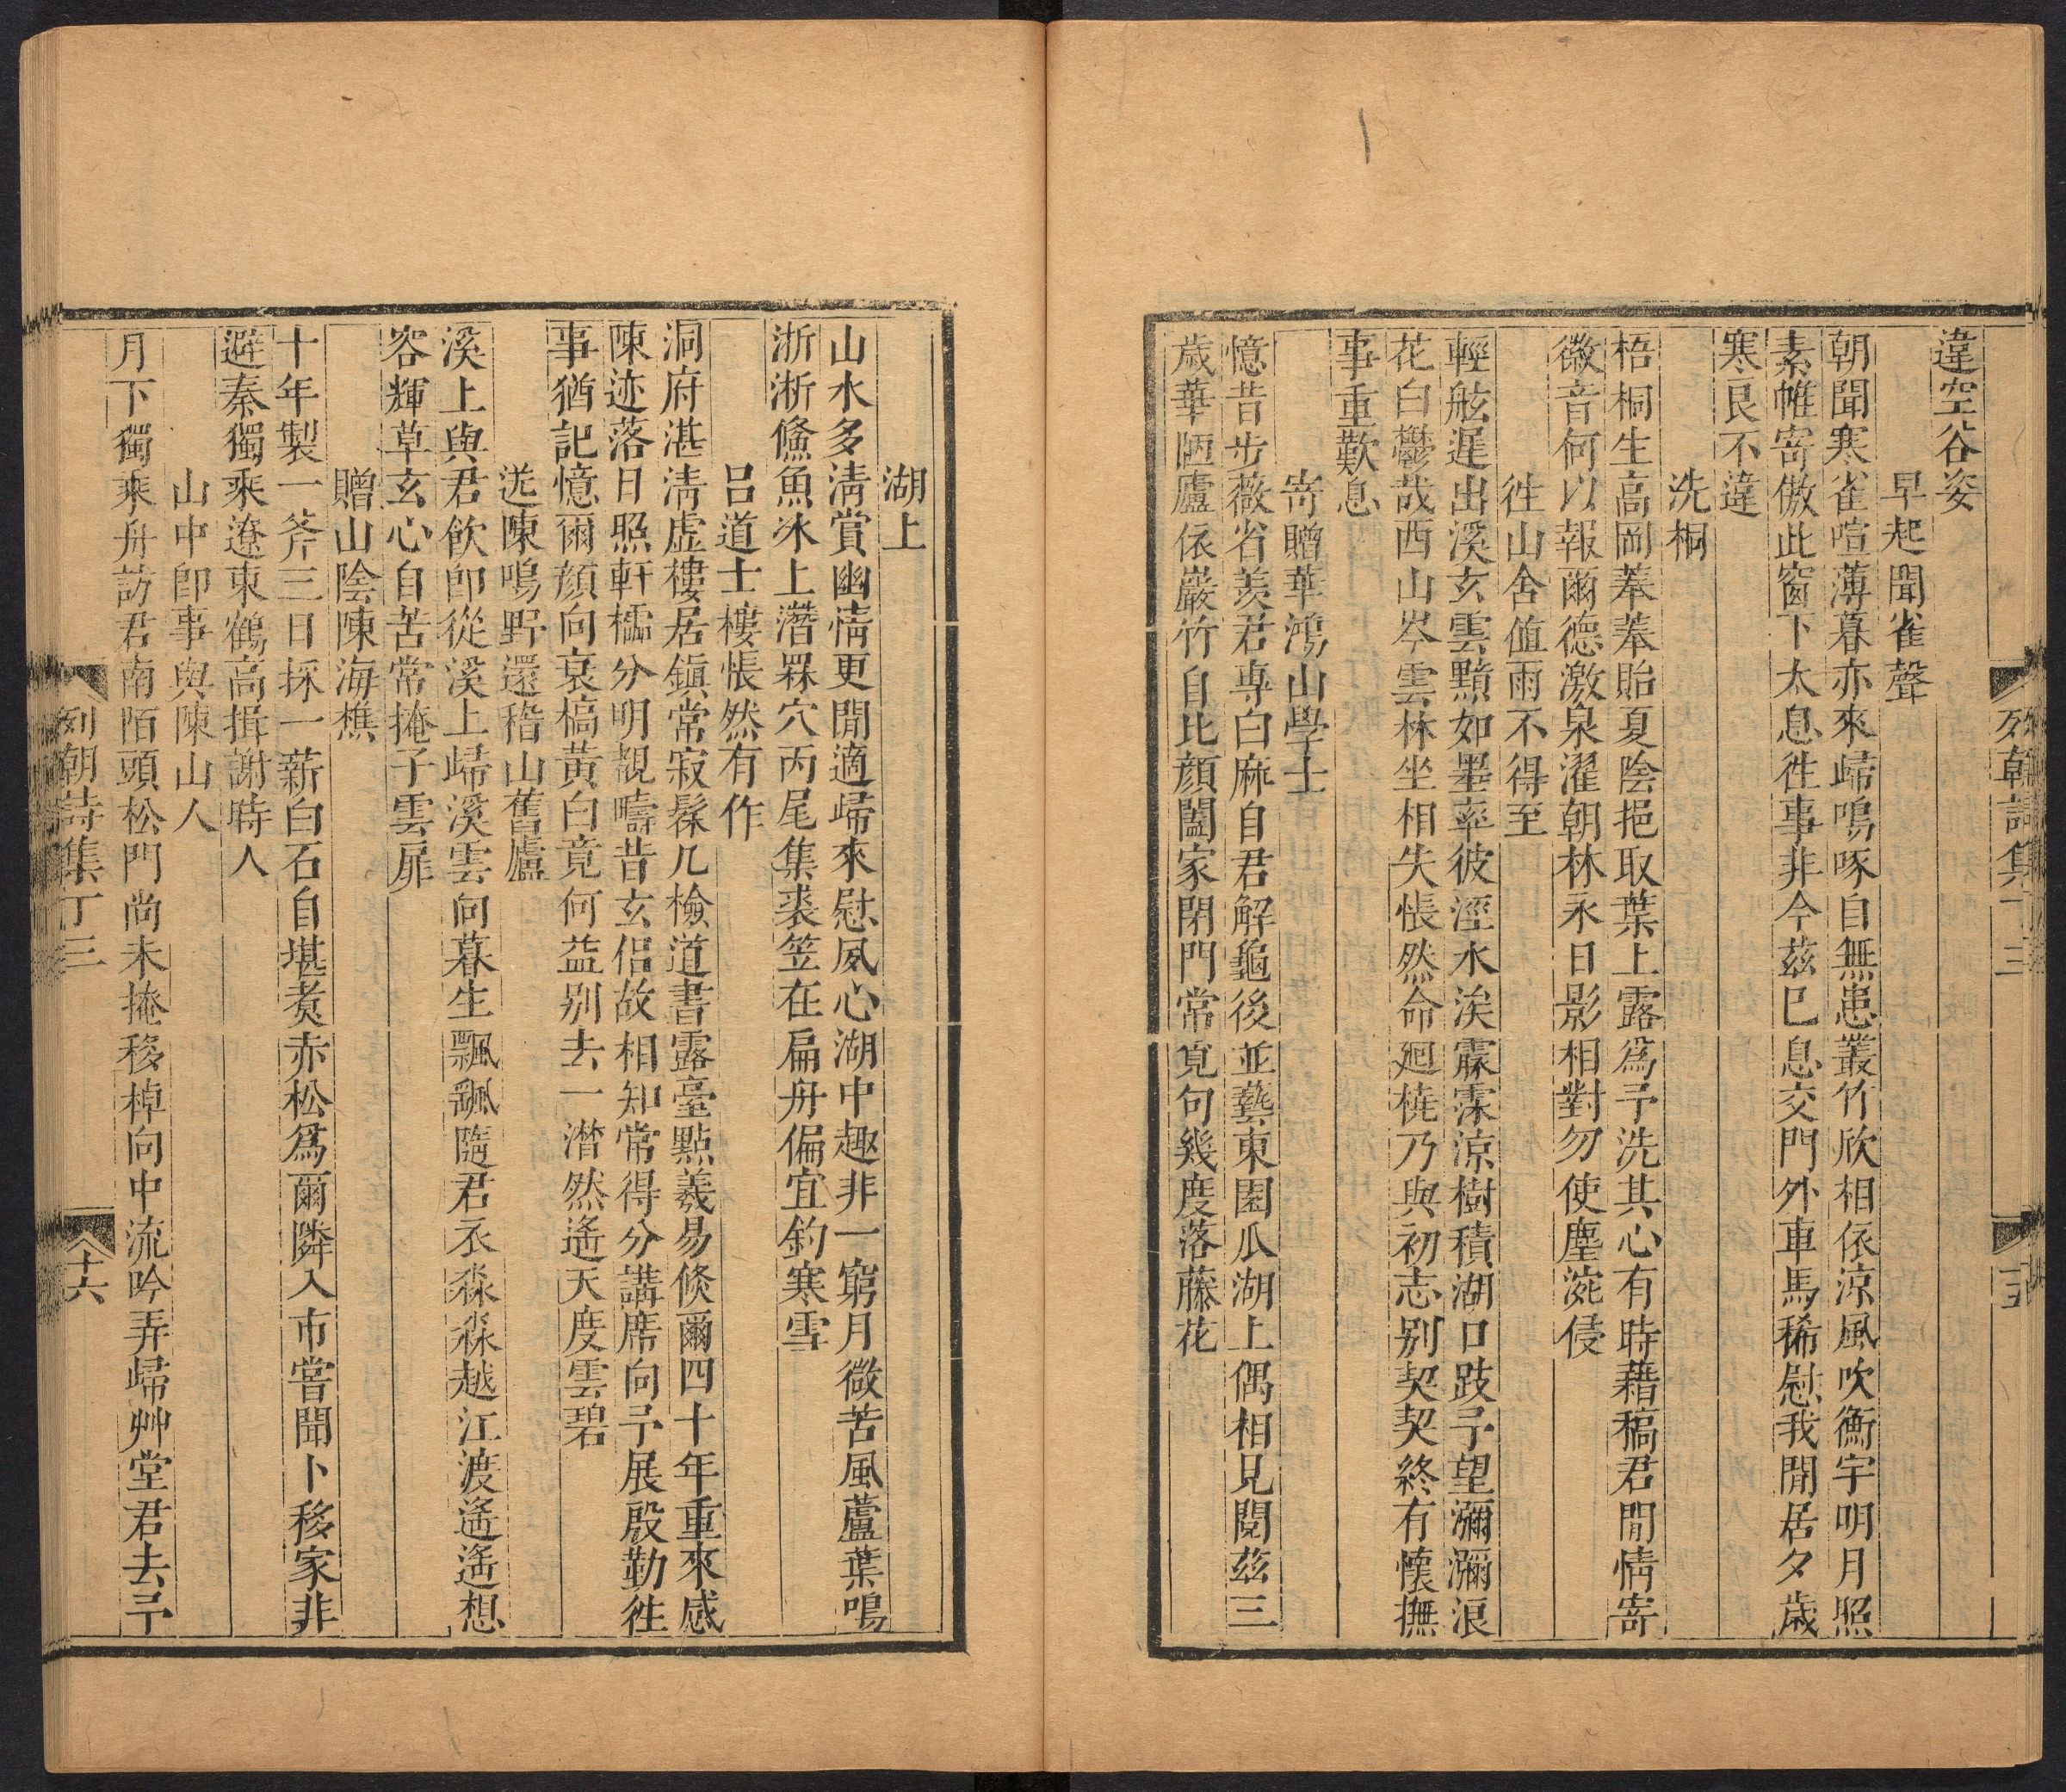 違空谷姿
早起聞雀聲
朝聞寒雀喧薄暮亦來歸鳴啄自無患叢竹欣相依涼風吹衡宇明月照
素帷寄傲此窗下太息徃事非今茲已息交門外車馬稀慰我閒居夕歲
寒良不違
洗桐
梧桐生高岡菶菶貽夏陰挹取葉上露爲予洗其心有時藉稿君閒情寄
徽音何以報爾德激泉濯朝林永日影相對勿使塵涴侵
徃山舍值雨不得至
輕舷遲出溪玄雲黯如墨率彼涇水涘霡霂涼樹積湖口跂予望瀰瀰浪
花白鬱哉西山岑雲林坐相失悵然命廻橈乃與初志别契契終有懷撫
事重歎息
寄贈華鴻山學士
憶昔步薇省羡君専白麻自君解龜後並藝東園瓜湖上偶相見閱茲三
歲華陋廬依巖竹自比顔闔家閉門常覓句幾度落藤花
列朝詩集丁三
十五
湖上
山水多淸賞幽情更閒適歸來慰夙心湖中趣非一窮月微苦風蘆葉鳴
淅淅鯈魚氷上濳罧穴丙尾集裘笠在扁舟偏宜釣寒雪
呂道士樓悵然有作
洞府湛淸虛樓居鎭常寂髹几檢道書露臺點羲易倐爾四十年重來感
陳迹落日照軒櫺分明覩疇昔玄侣故相知常得分講席向予展殷勤徃
事猶記憶爾顔向衰槁黃白竟何益别去一潸然遙天度雲碧
送陳鳴野還稽山舊廬
溪上與君飲卽從溪上歸溪雲向暮生飄飄隨君衣淼淼越江渡遙遙想
容輝草玄心自苦常掩子雲扉
贈山陰陳海樵
十年製一斧三日採一薪白石自堪煑赤松爲爾隣入市嘗聞卜移家非
避秦獨乘遼東鶴高揖謝時人
山中卽事與陳山人
月下獨乘舟訪君南陌頭松門尚未掩移棹向中流吟弄歸艸堂君去予
列朝詩集丁三
十六